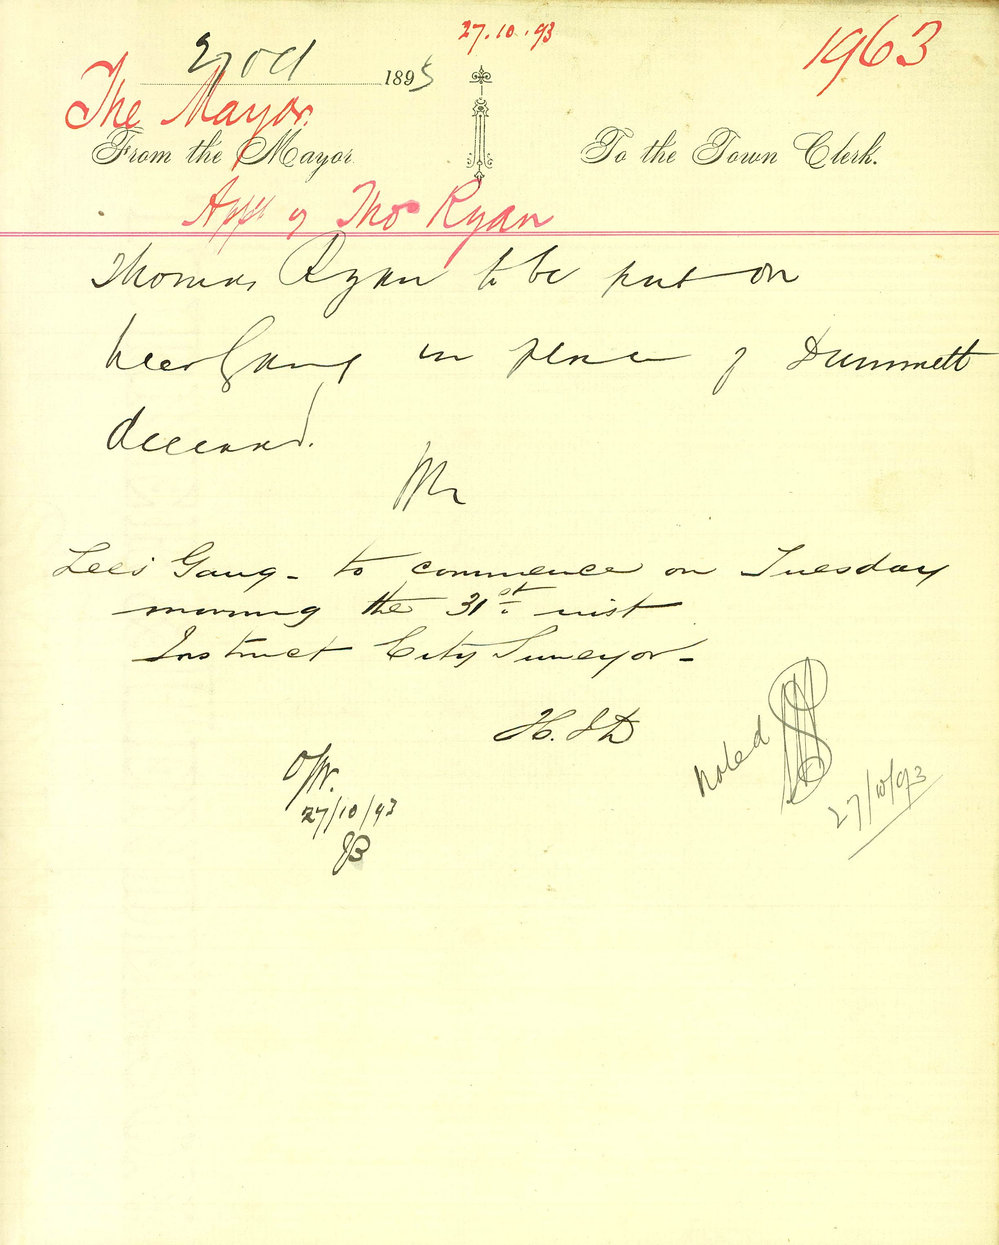 27.10.93
1963
27 Oct 1893
The Mayor.
From the Mayor
To the Town Clerk.
App of Thos Ryan
Thomas Ryan to be put on
Lees Gang in place of Dummett
deceased.
Lees Gang - to commence on Tuesday
morning the 31st inst
Instruct City Surveyor -
H. J. D
noted
27/10/93
27/10/93
JB